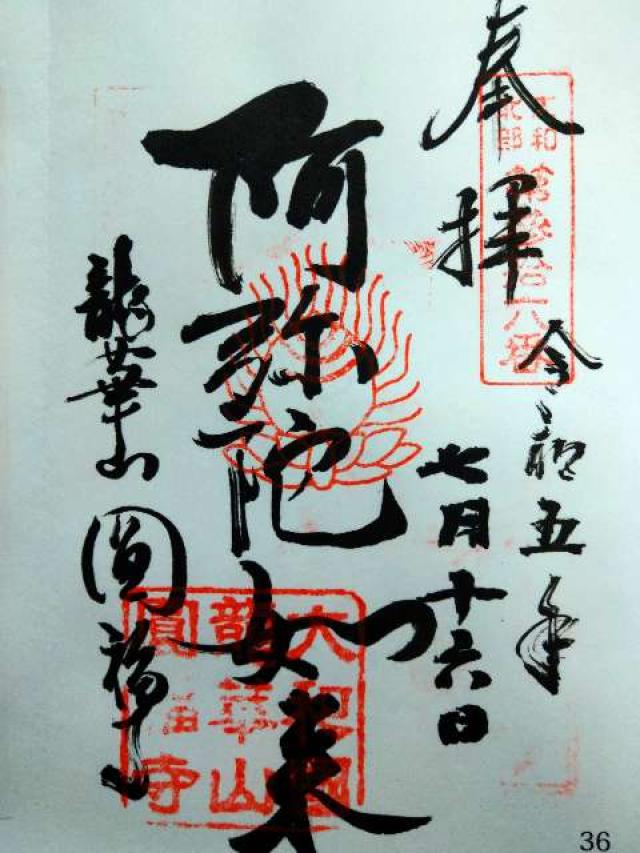 奉拝
大和
北部
第参拾六番
令和五年
七月十六日
阿弥陀如来
龍華山
圓福寺
大和國
龍華山
圓福寺
36